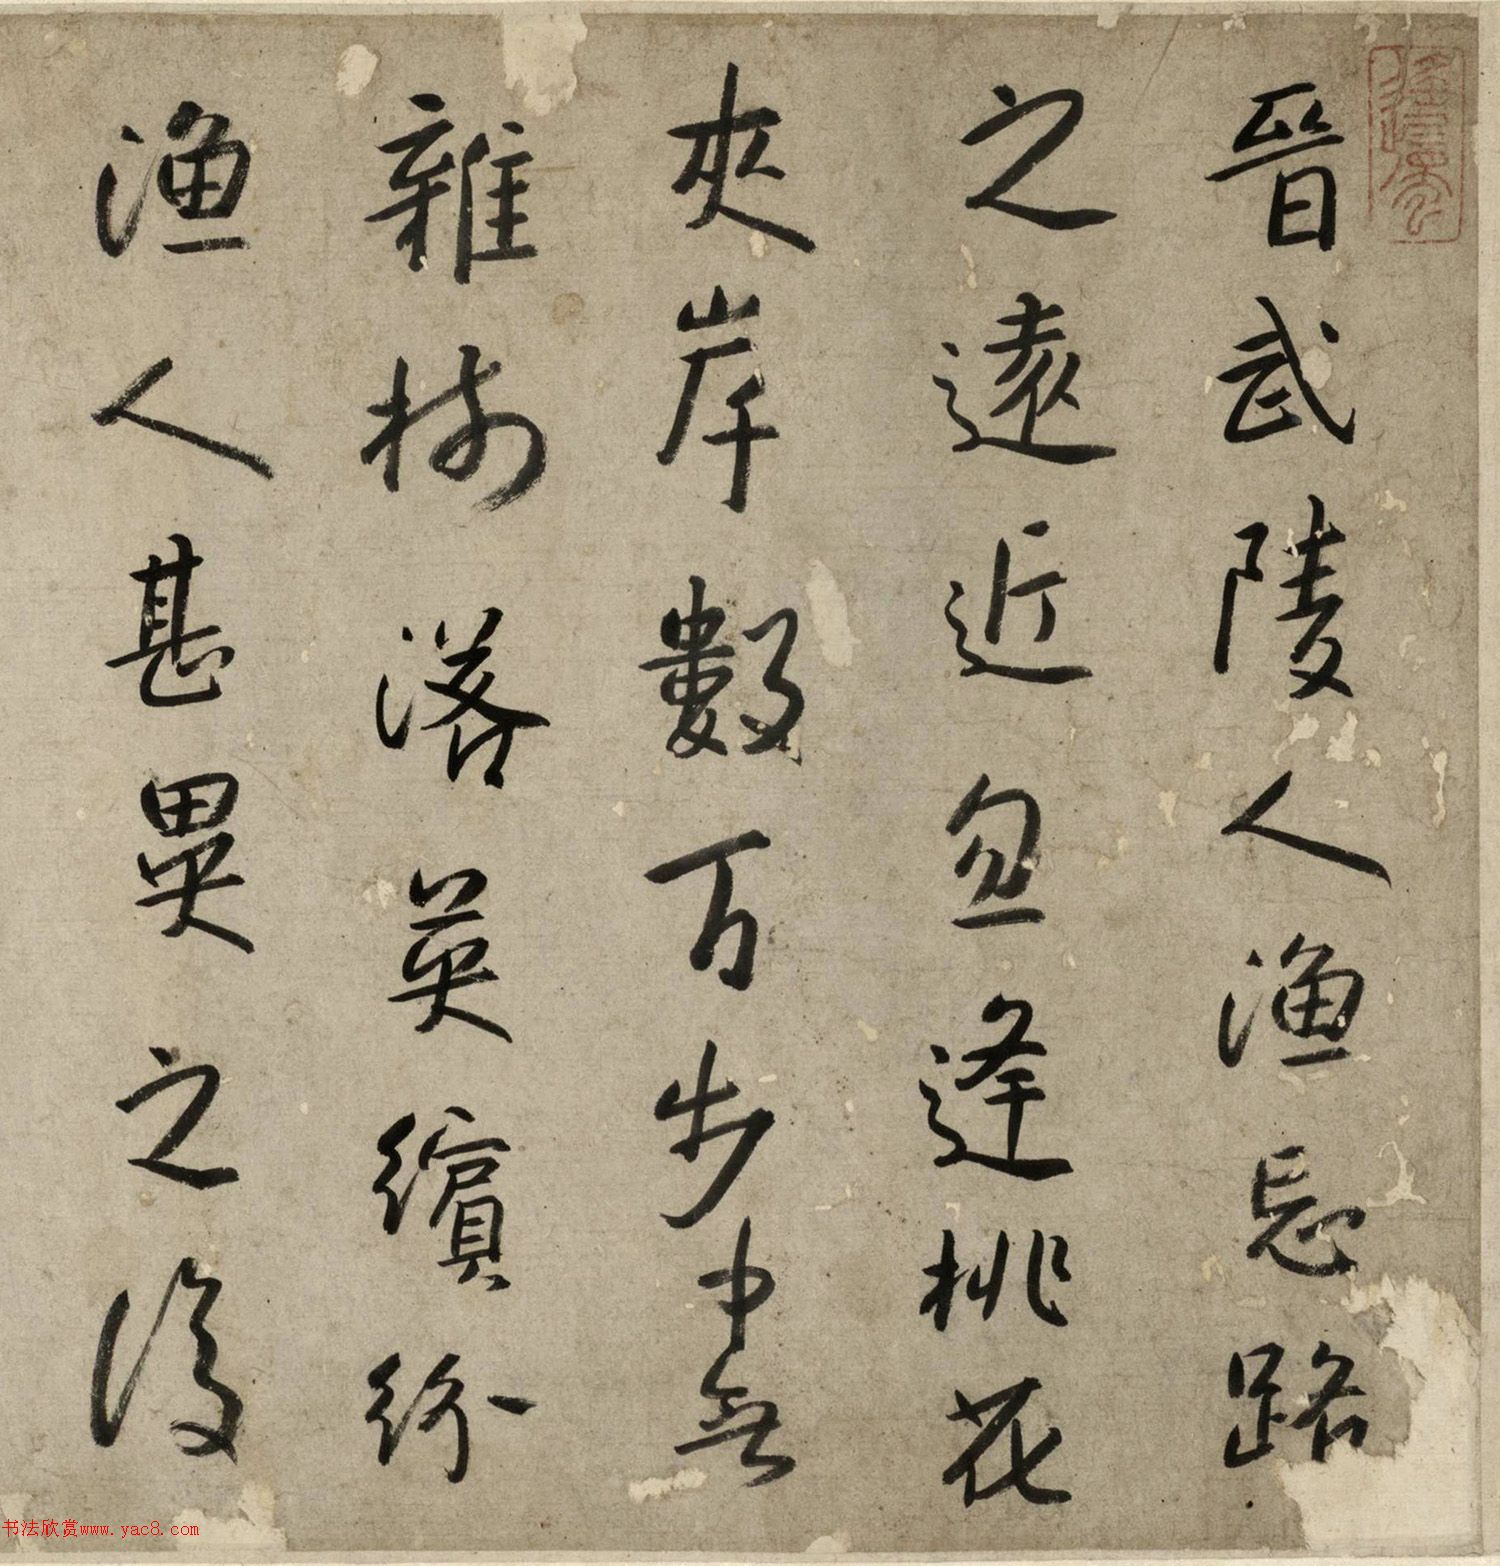 晉武陵人漁忘路
之遠近忽逢桃花
夾岸數百步中無
雜樹落英繽紛
漁人甚異之復
书法欣赏www.yac8.com